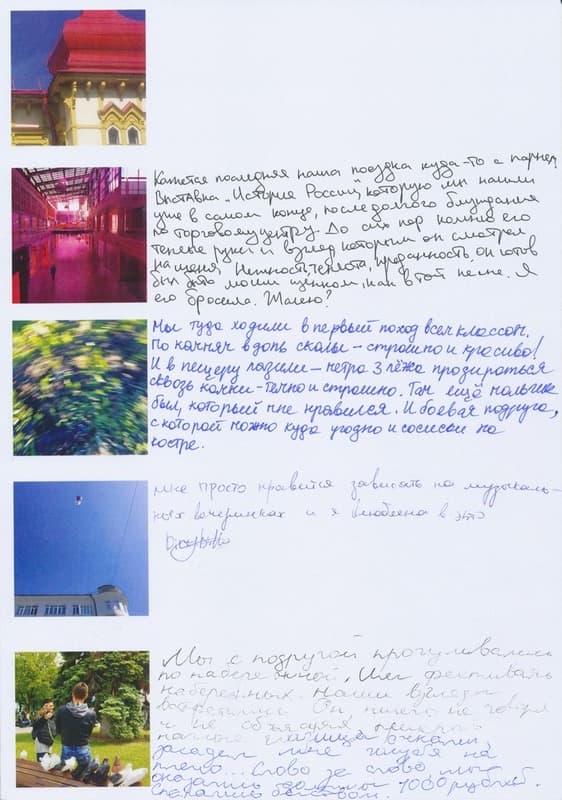 Кажется последняя наша поездка куда-то с парнем.
Выставка "История России", которую мы нашли
уже в самом конце, после долгого блуждания
по торговому центру. До сих пор помню его
теплые руки и взгляд которым он смотрел
на меня. Нежность, теплота, преданность, он готов
был быть моим щенком, как в той песне. Я
его бросила. Жалею?
Мы туда ходили в первый поход всем классом.
По камням вдоль скалы - страшно и красиво!
И в пещеру лазили - метра 3 лёжа продираться
сквозь камни - темно и страшно. Там ещё мальчик
был, который мне нравился. И боевая подруга,
с которой можно куда угодно и сосиски на
костре.
мне просто нравится зависать на музыкаль-
ных вечеринках и я влюблена в это
Мы с подругой прогуливались
по набережной. Шёл фестиваль
набережных. Наши взгляды
встретились. Он ничего не говоря
и не объясняя,
посадил мне голубя на
плечо... Слово за слово мы
оказались должны 1000 рублей.
Спаслись бегством.